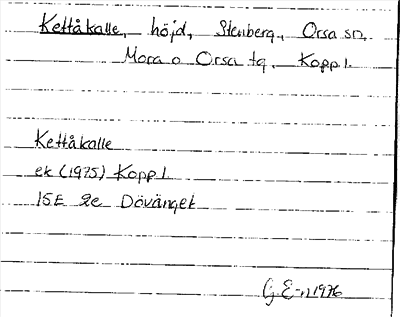 Kettåkalle, höjd, Stenberg, Orsa sn,
Mora o Orsa tg, Kopp l.
Kettåkalle
ek (1975) Kopp l.
15E 2e Dövänget
G.E-n 1976